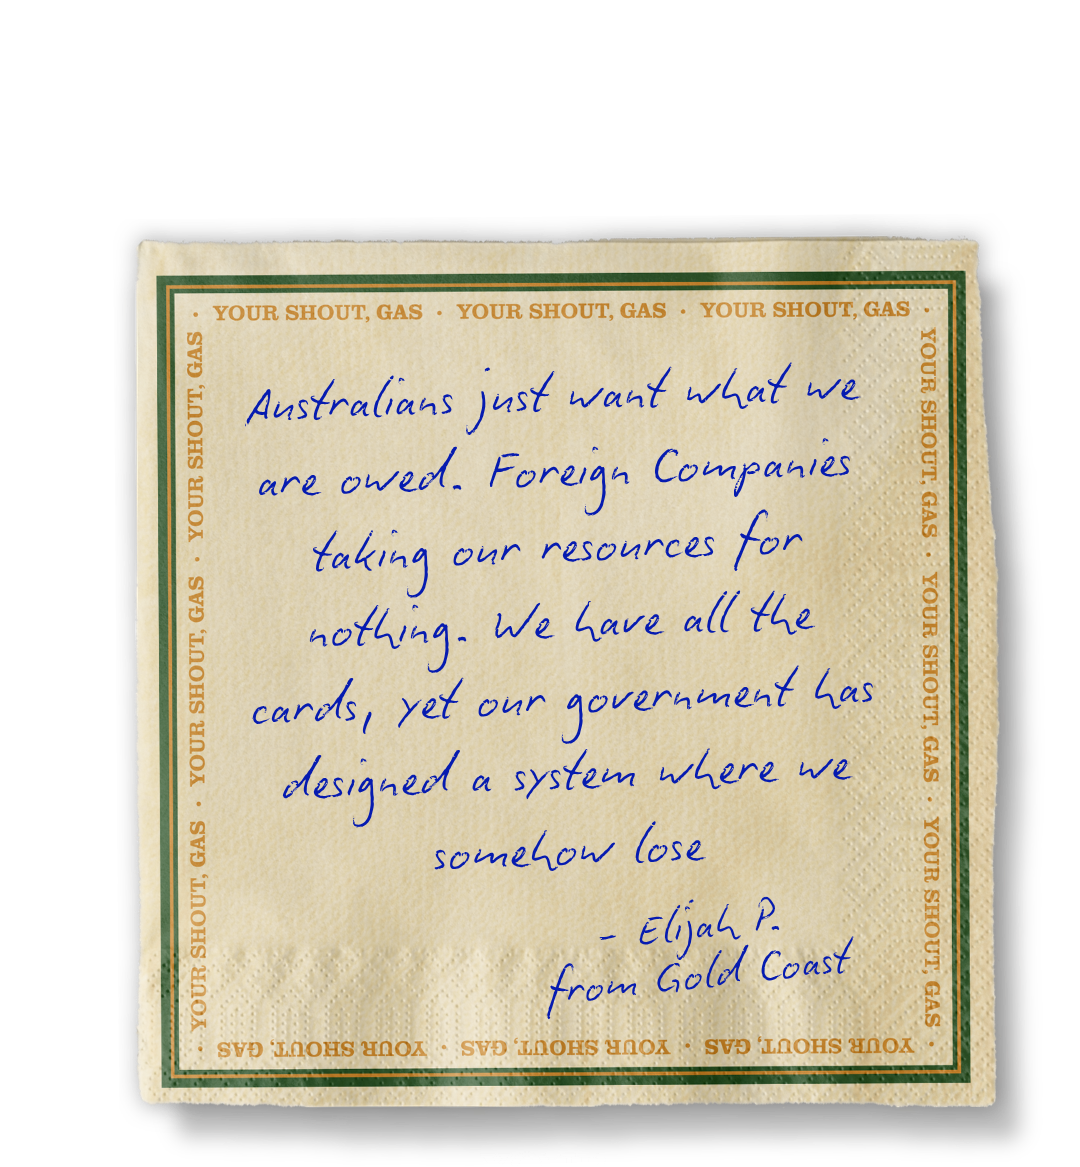 · YOUR SHOUT, GAS · YOUR SHOUT, GAS · YOUR SHOUT, GAS ·
Australians just want what we
are owed. Foreign Companies
taking our resources for
nothing. We have all the
cards, yet our government has
designed a system where we
somehow lose
- Elijah P.
from Gold Coast
YOUR SHOUT, GAS · YOUR SHOUT, GAS · YOUR SHOUT, GAS
YOUR SHOUT, GAS · YOUR SHOUT, GAS · YOUR SHOUT, GAS
· YOUR SHOUT, GAS · YOUR SHOUT, GAS · YOUR SHOUT, GAS ·